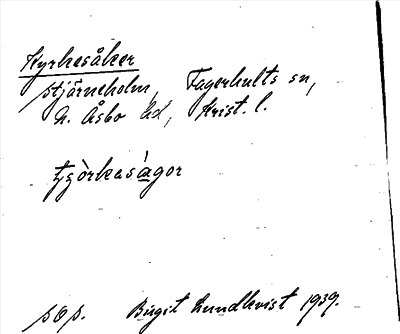 Kyrkesåker
Stjärneholm, Fagerhults sn,
N. Åsbo hd, Krist. l.
tyòrkaságor
Birgit Lundkvist 1939.